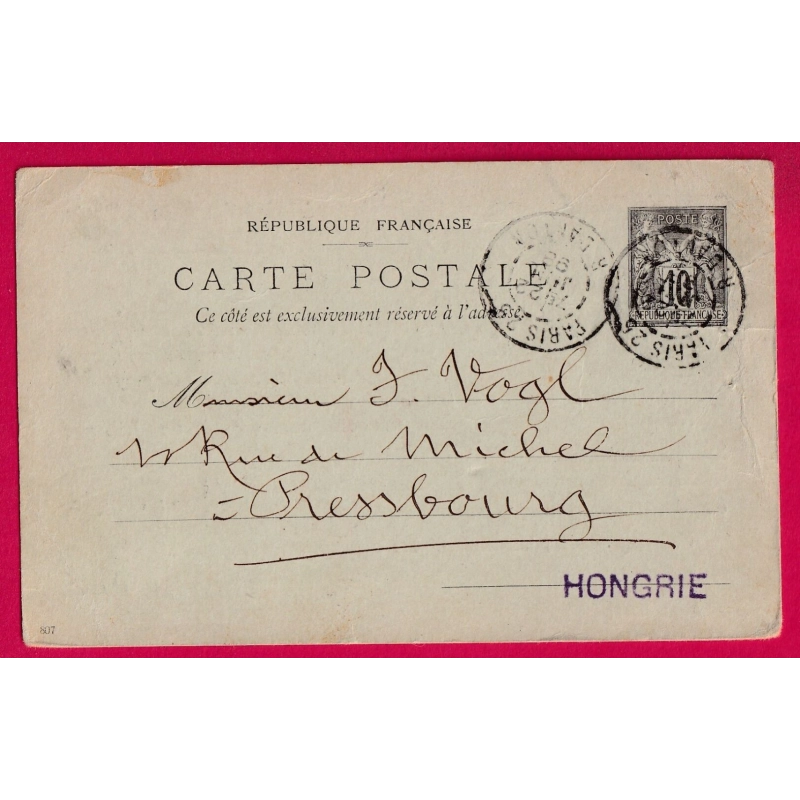 RÉPUBLIQUE FRANÇAISE
POSTES
CARTE POSTALE
10
REPUBLIQUE FRANÇAISE
Ce côté est exclusivement réservé à l'adresse
PARIS 25
PARIS 25
Monsieur J. Vogl
Rue de Michel
= Pressbourg
HONGRIE
807